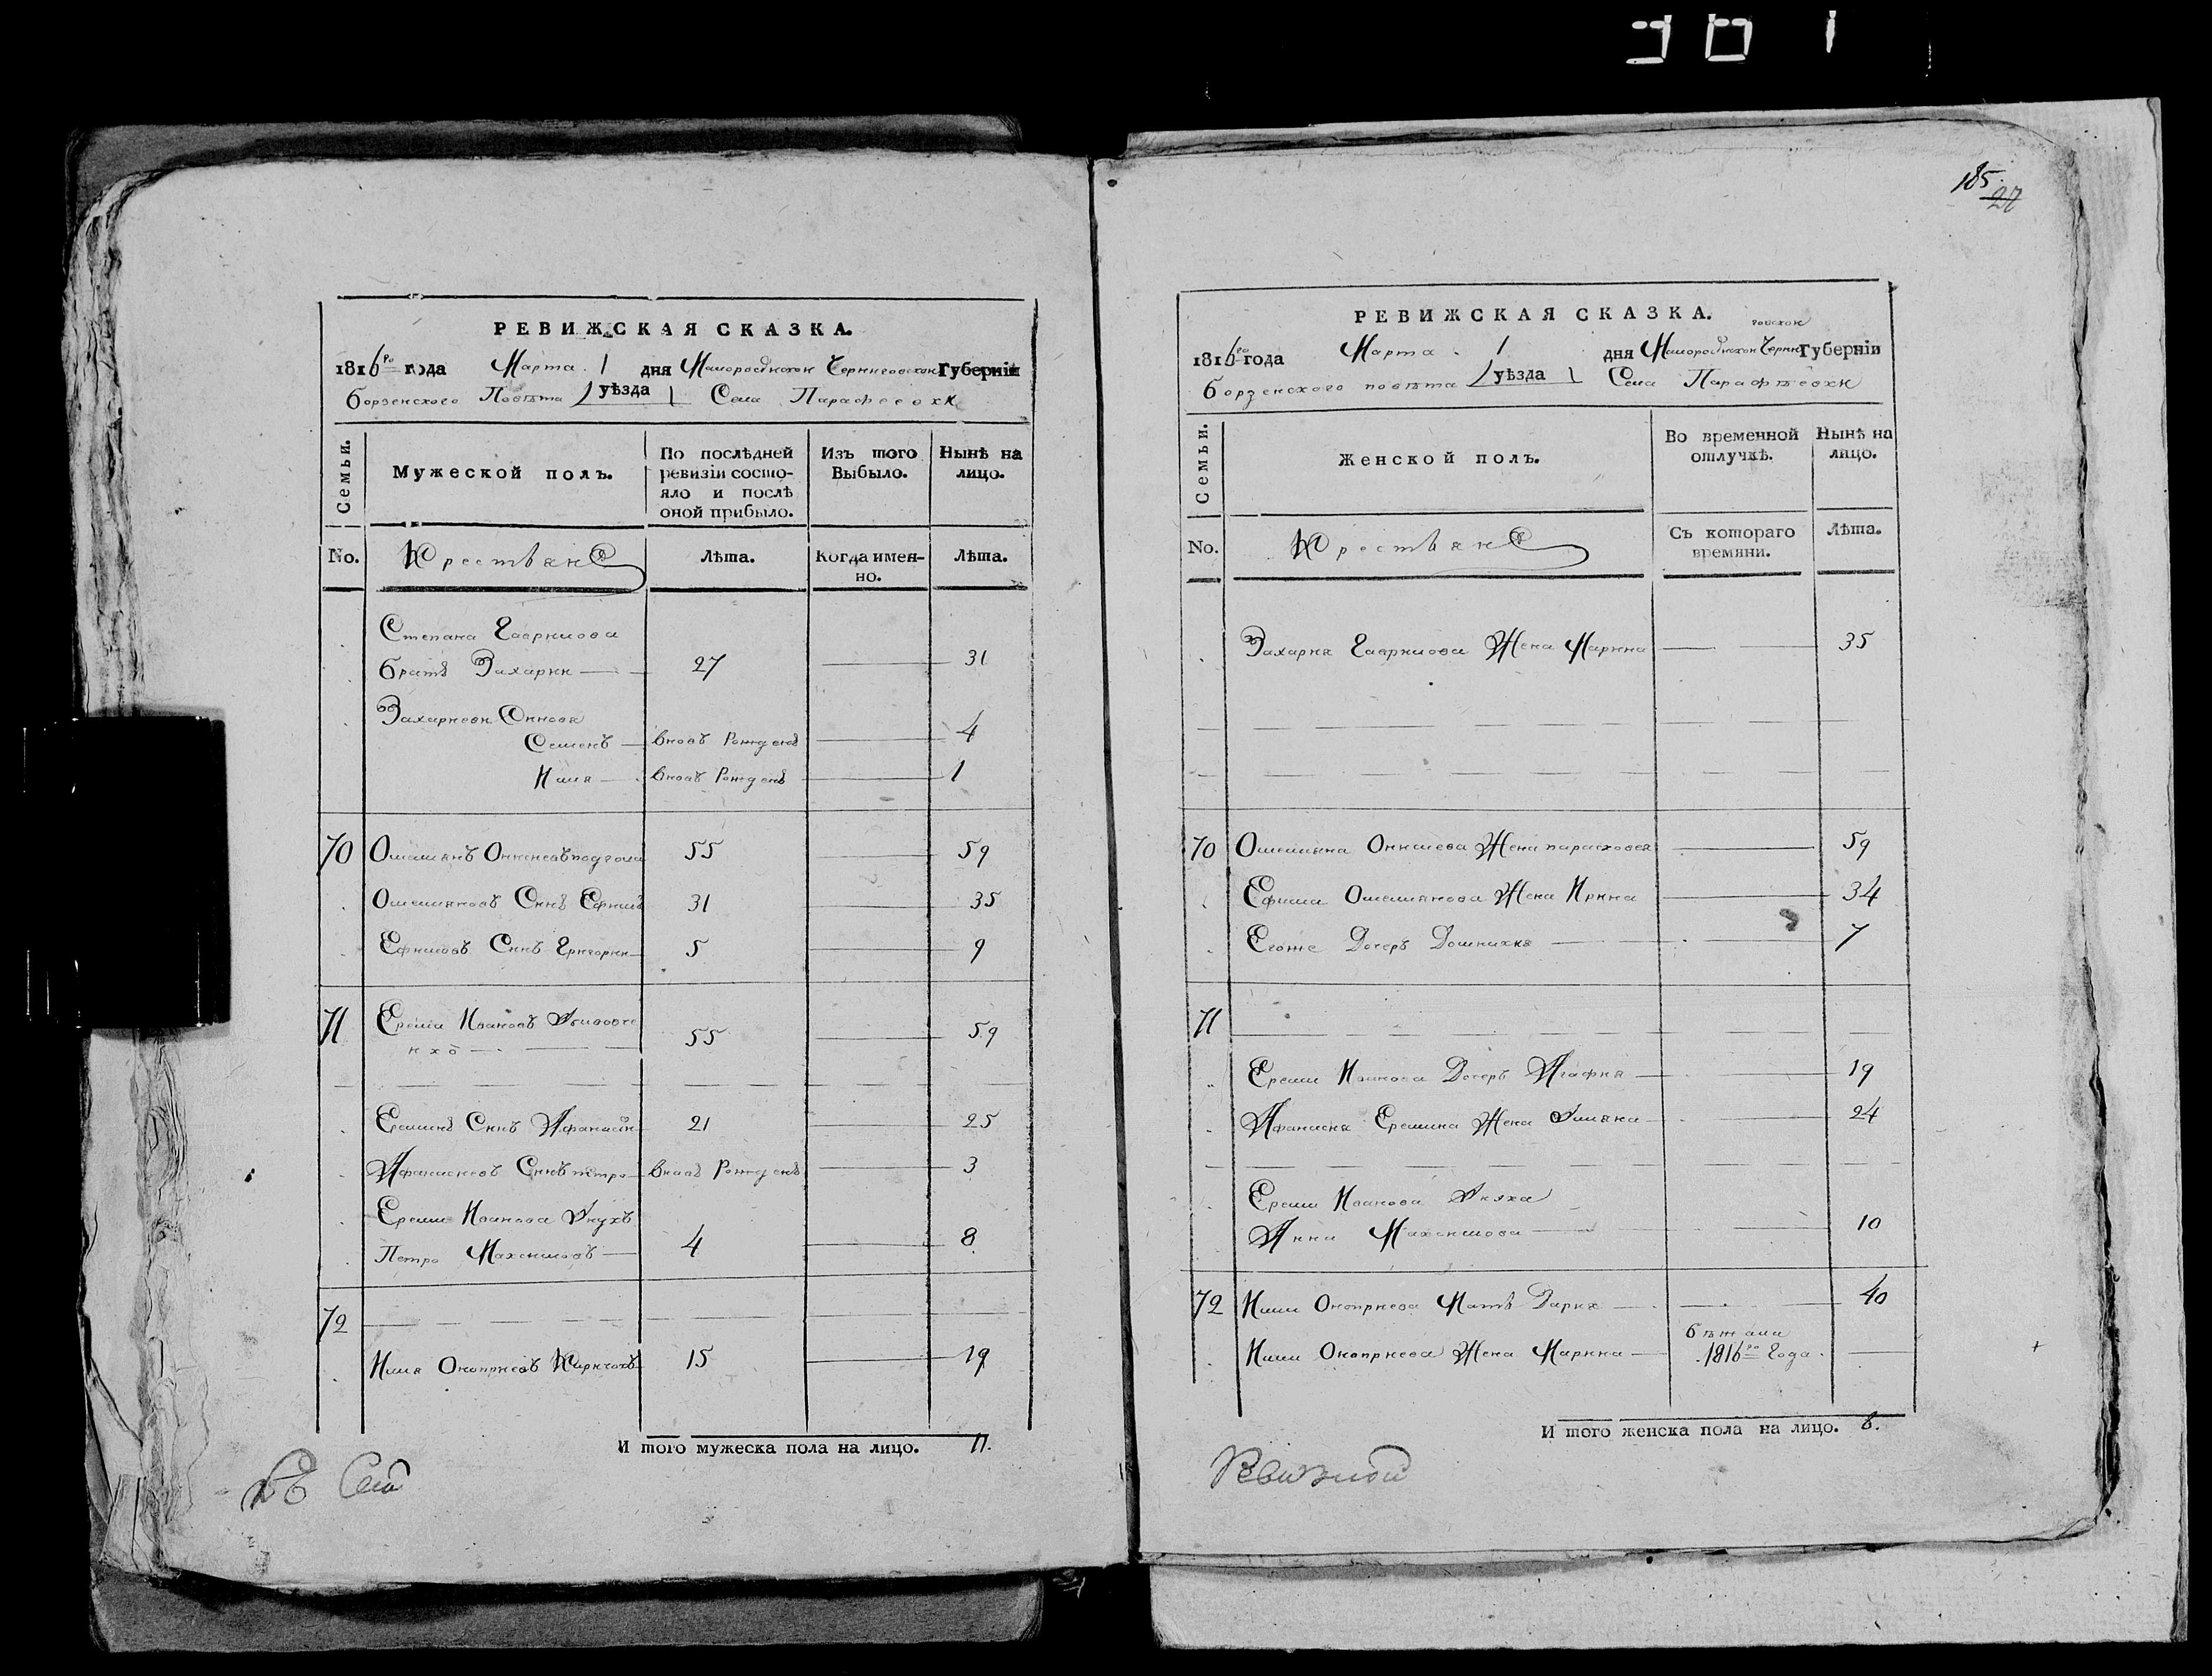 РЕВИЖСКАЯ СКАЗКА.
1816го года Марта 1 дня Малоросійской Черниговской Губерніи
борзенского Повѣта уѣзда Села Парафеевки
Семьи.
Мужеской полъ.
По послѣдней
ревизіи состо-
яло и послѣ
оной прибыло.
Изъ того
Выбыло.
Нынѣ на
лицо.
No.
Крестьяне
Лѣта.
Когда имен-
но.
Лѣта.
Степана Гаврилова
братъ Захарий 27 31
Захариевы Сынова
Семенъ вновь Рожденъ 4
Илия вновь Рожденъ 1
70 Омелянъ 55 59
Омеляновъ Снъ Ефимъ 31 35
Ефимовъ Снъ Григорий 5 9
71 Ерема Ивановъ
нко 55 59
Ереминъ Снъ Афанасий 21 25
Афанасиевъ Снъ петро вновь Рожденъ 3
Еремы Иванова Внукъ
Петро Максимовъ 4 8
72
Илия Оноприевъ Киричокъ 15 19
И того мужеска пола на лицо. 11.
Къ Сей
185.
27
РЕВИЖСКАЯ СКАЗКА.
говской
1816го года Марта 1 дня Малоросійской Черни Губерніи
борзенского повѣта уѣзда Села Парафѣевки
Семьи.
Женской полъ.
Во временной
отлучкѣ.
Нынѣ на
лицо.
No.
Крестьяне
Съ котораго
времяни.
Лѣта.
Захария Гаврилова Жена Марина 35
70 Омеляна Жена парасковея 59
Ефима Омелянова Жена Ирина 34
Егоже Дочеръ Домникия 7
71
Еремы Иванова Дочеръ Агафия 19
Афанасия Еремина Жена Улияна 24
Еремы Иванова Внука
Анна Максимова 10
72 Илии Оноприева Мать Дария 40
бѣжала
Илии Оноприева Жена Марина 1816го Года.
И того женска пола на лицо. 8.
Ревизкой